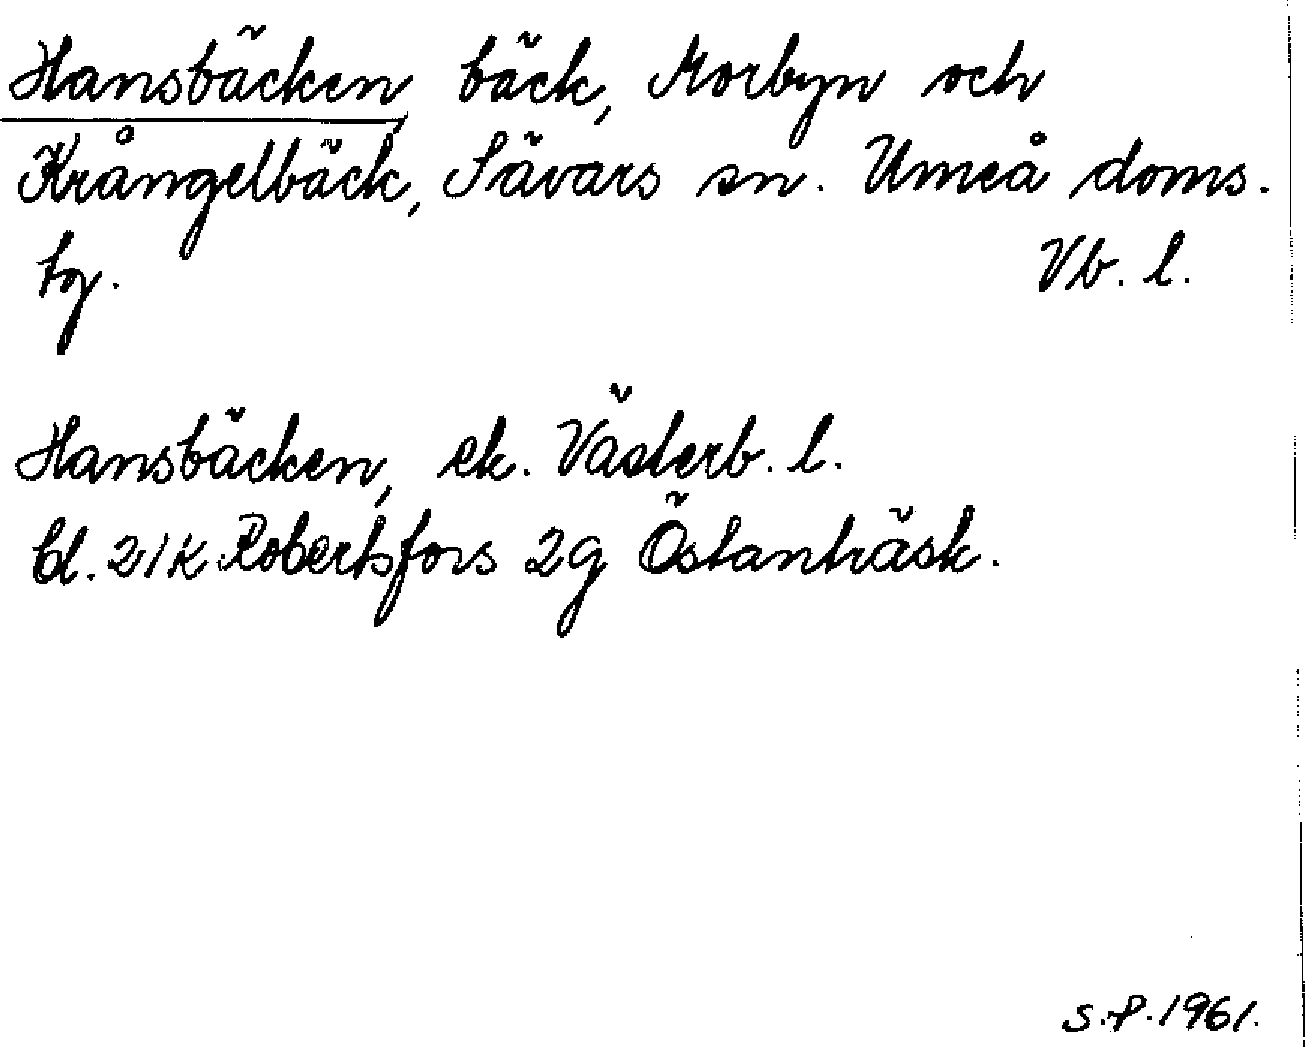 Hansbäcken, bäck, Morbyn och
Krångelbäck, Sävars sn. Umeå doms.
tg. Vb. l.
Hansbäcken, ek. Västerb. l.
bl. 21K Robertsfors 2g Östanträsk.
S.P. 1961.